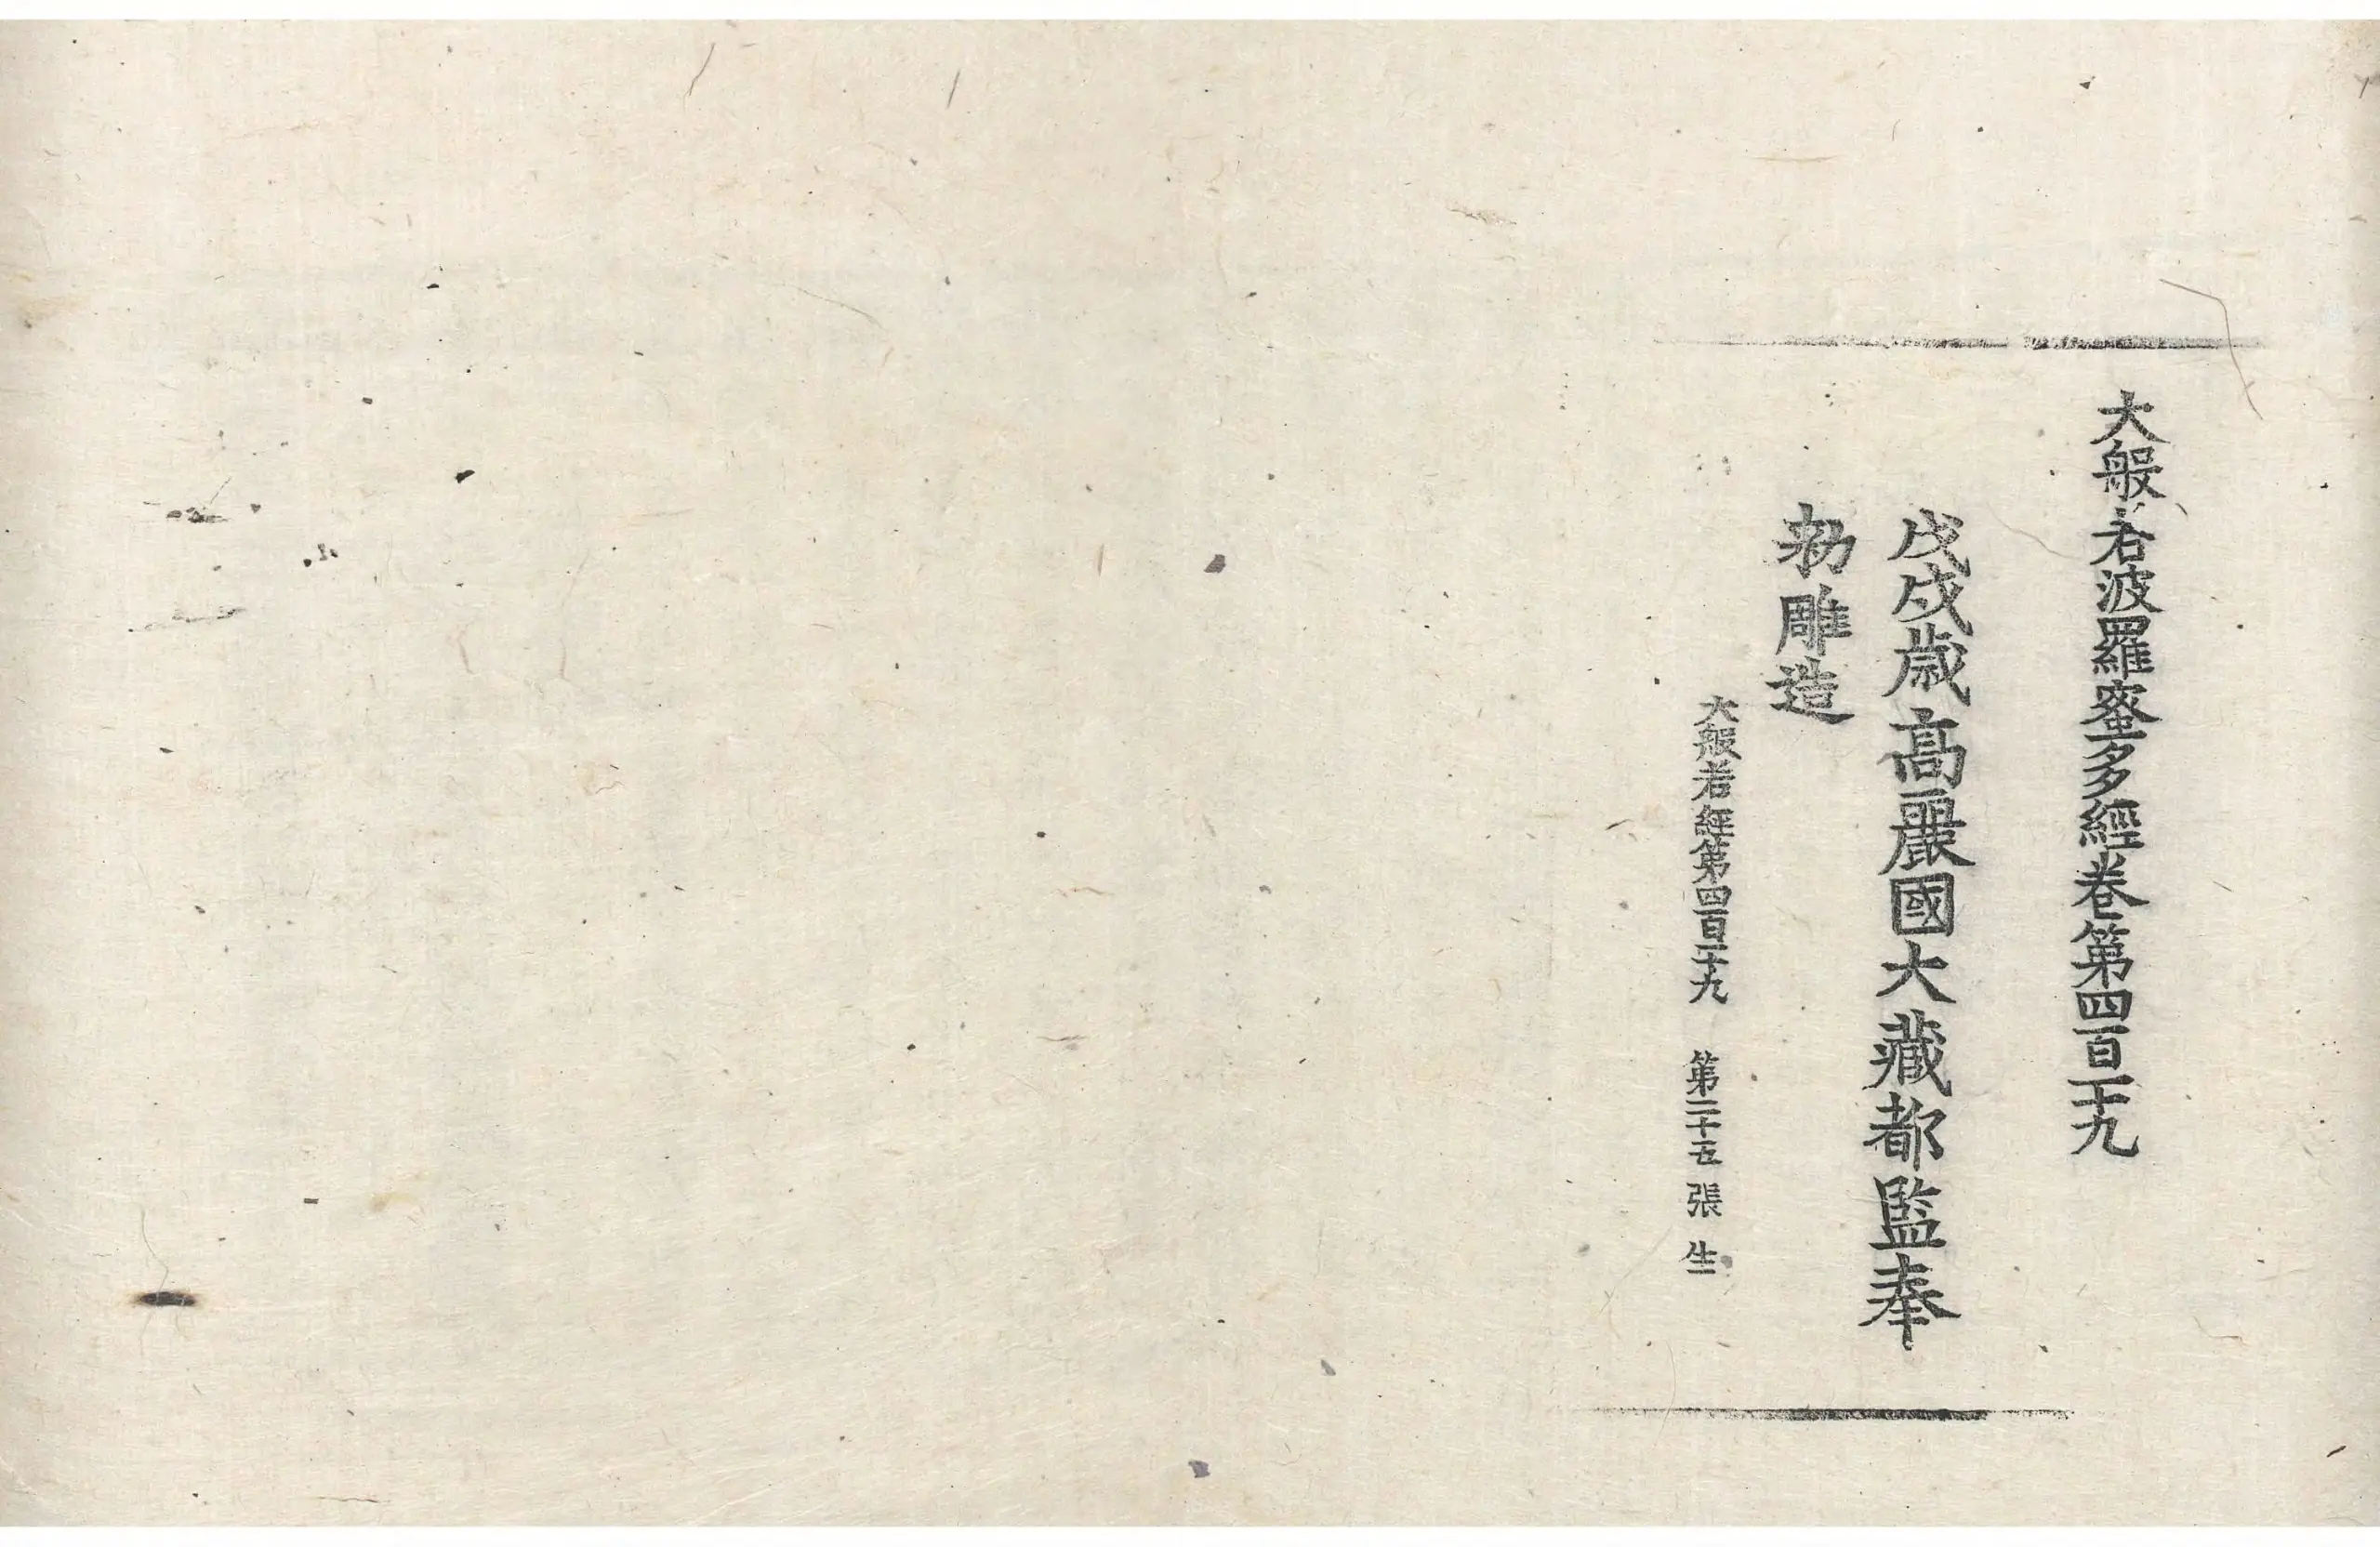 大般若波羅蜜多經卷第四百一十九
戊戌歲高麗國大藏都監奉
勑雕造
大般若經第四百一十九 第二十五張 生